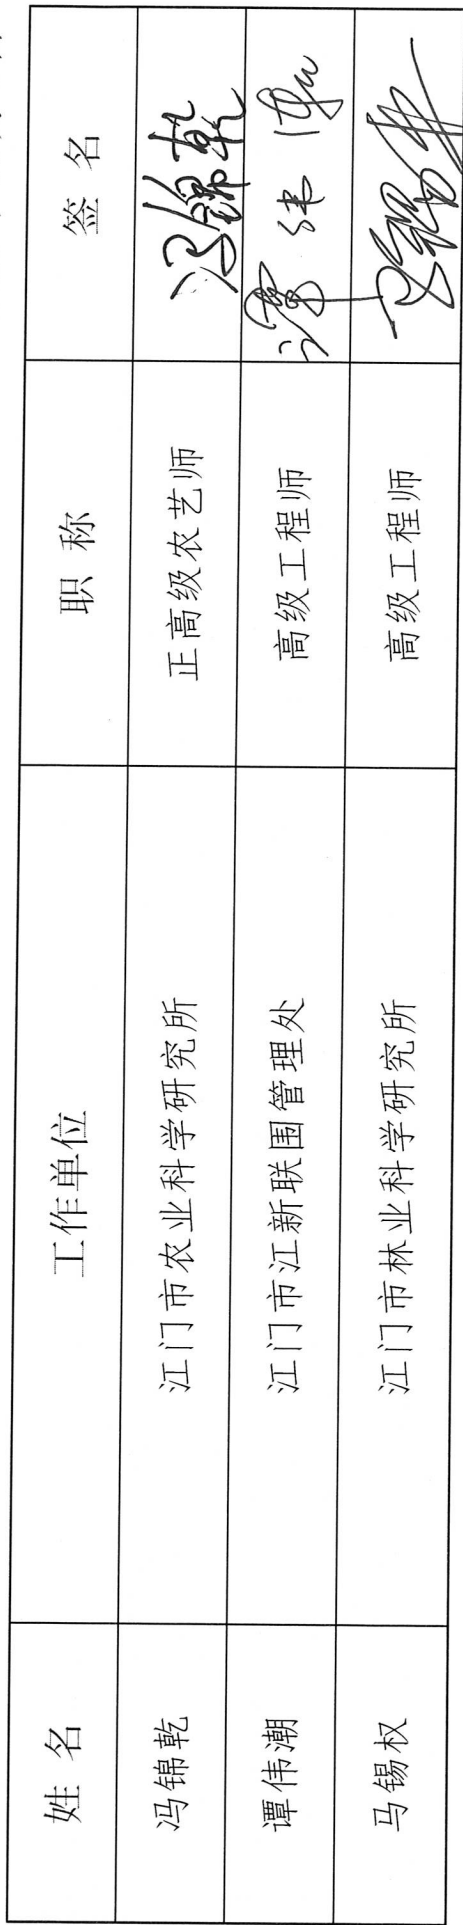 姓名 工作单位 职称 签名
冯锦乾 江门市农业科学研究所 正高级农艺师 冯锦乾
谭伟潮 江门市江新联围管理处 高级工程师
马锡权 江门市林业科学研究所 高级工程师